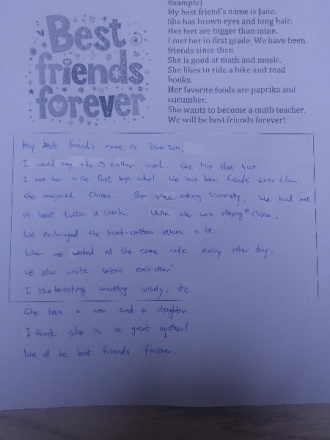 Best friends forever
Example)
My best friend's name is Jane.
She has brown eyes and long hair.
Her feet are bigger than mine.
I met her in first grade. We have been
friends since then.
She is good at math and music.
She likes to ride a bike and read
books.
Her favorite foods are paprika and
cucumber.
She wants to become a math teacher.
We will be best friends forever!
My best friend's name is
I would say she is rather cool. She has short hair.
I met her in the first high school. We have been friends since then.
She majored Chinese. university, we had met
at least twice a week. While she was staying in China,
We exchanged the hand-written letters a lot
When we worked at the same every other day,
we also wrote letters each other.
I like traveling
She has a son and a daughter
I think she is a great mother!
We'll be best friends forever.